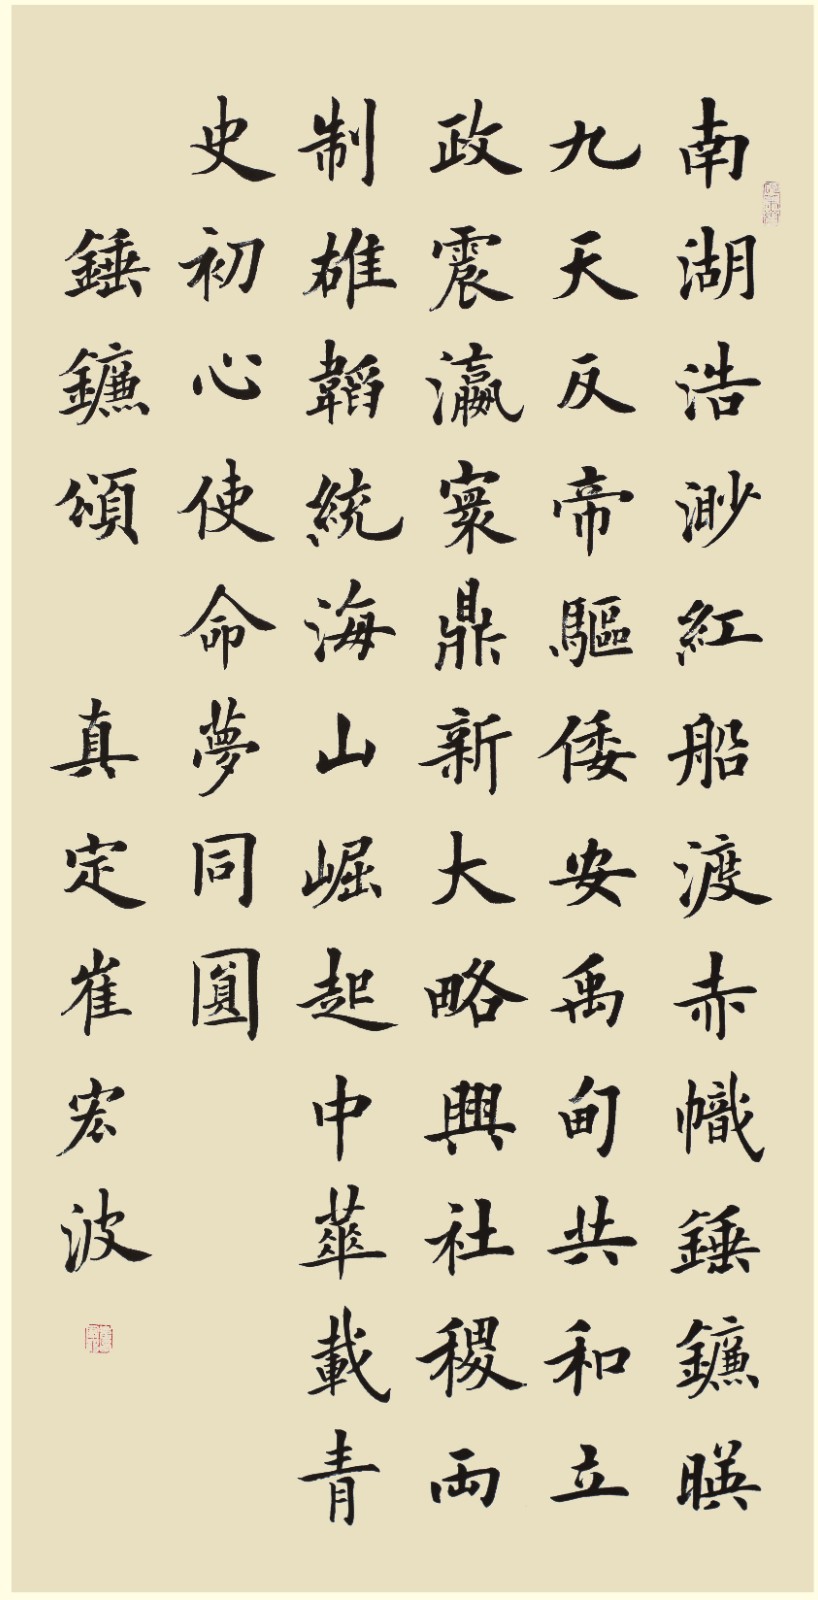 南湖浩渺紅船渡赤幟錘鐮暎
九天反帝驅倭安禹甸共和立
政震瀛寰鼎新大略興社稷兩
制雄韜統海山崛起中華載青
史初心使命夢同圓
錘鐮頌 真定崔宏波